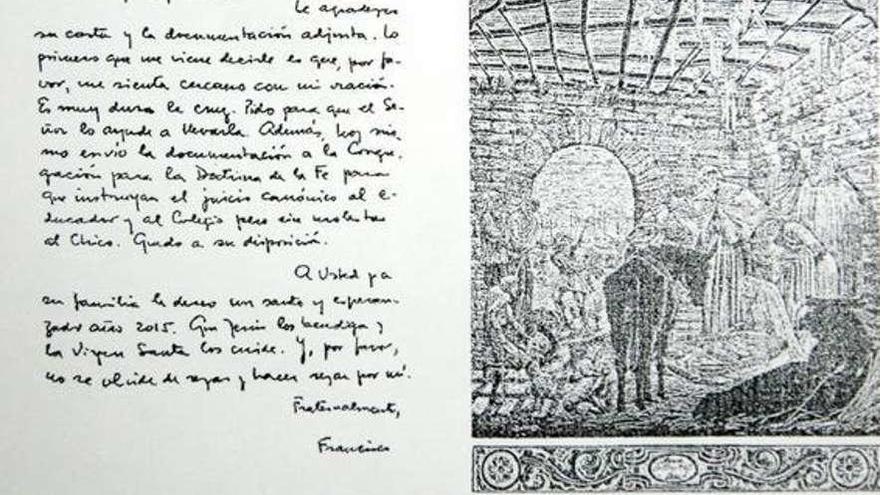 Le agradezco
su carta y la documentación adjunta. Lo
primero que me viene decirle es que, por fa-
vor, me sienta cercano con mi oración.
Es muy dura la cruz. Pido para que el Se-
ñor lo ayude a llevarla. Además, hoy mis-
mo envió la documentación a la Congre-
gación para la Doctrina de la Fe para
que instruyan el juicio canónico al e-
ducador y al Colegio pero sin molestar
al Chico. Quedo a su disposición.
A Usted y a
su familia le deseo un santo y esperan-
zado año 2015. Que Jesús los bendiga y
la Virgen Santa los cuide. Y, por favor,
no se olvide de rezar y hacer rezar por mí.
Fraternalmente,
Francisco